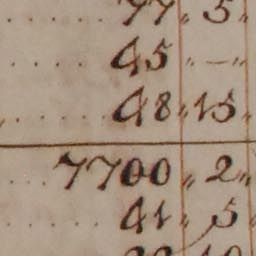 77 " 5 "
45 " — "
48 " 15 "
7700 " 2 "
41 " 5